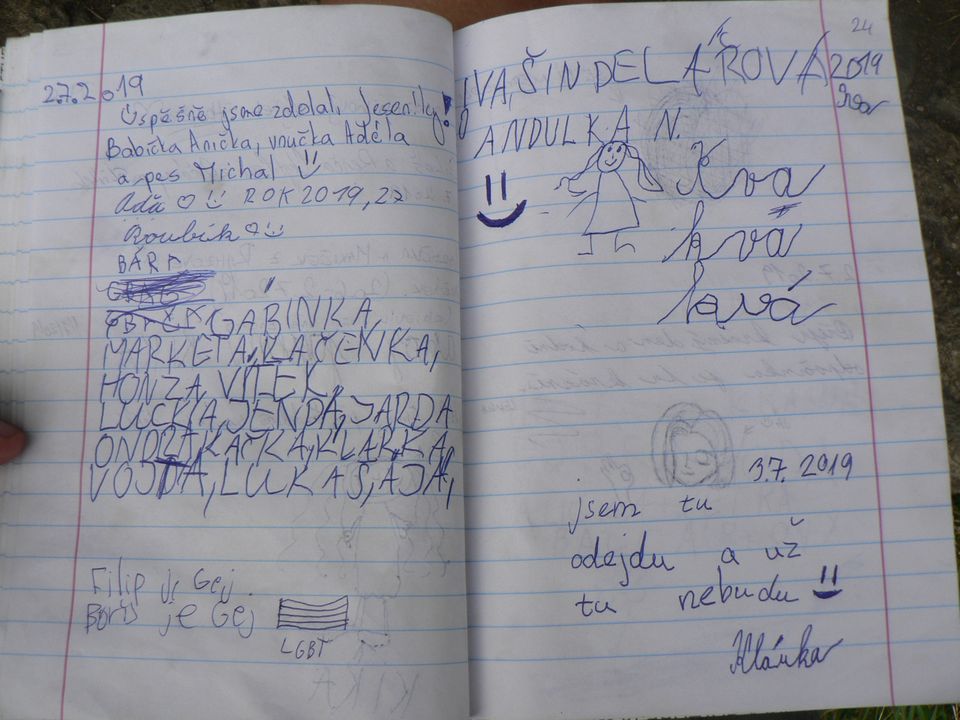 2.7.2019
Úspěšně jsme zdolali Jeseníky!
Babička Anička, vnučka Adéla
a pes Michal
Áďa ROK 2019, 27
Roubík
BÁRA
GÁBINKA,
MARKÉTA, KAČENKA,
HONZA, VÍTEK,
LUCKA, JENDA, JARDA
ONDRA, KAČKA, KLÁRKA,
VOJTA, LUKÁŠ, AJA,
Filip je Gej
Boris je Gej
LGBT
24
IVA, ŠINDELÁŘOVÁ
2019
ANDULKA N.
Kvá
kvá
kvá
3.7. 2019
jsem tu
odejdu a už
tu nebudu
Klárka
KIKA